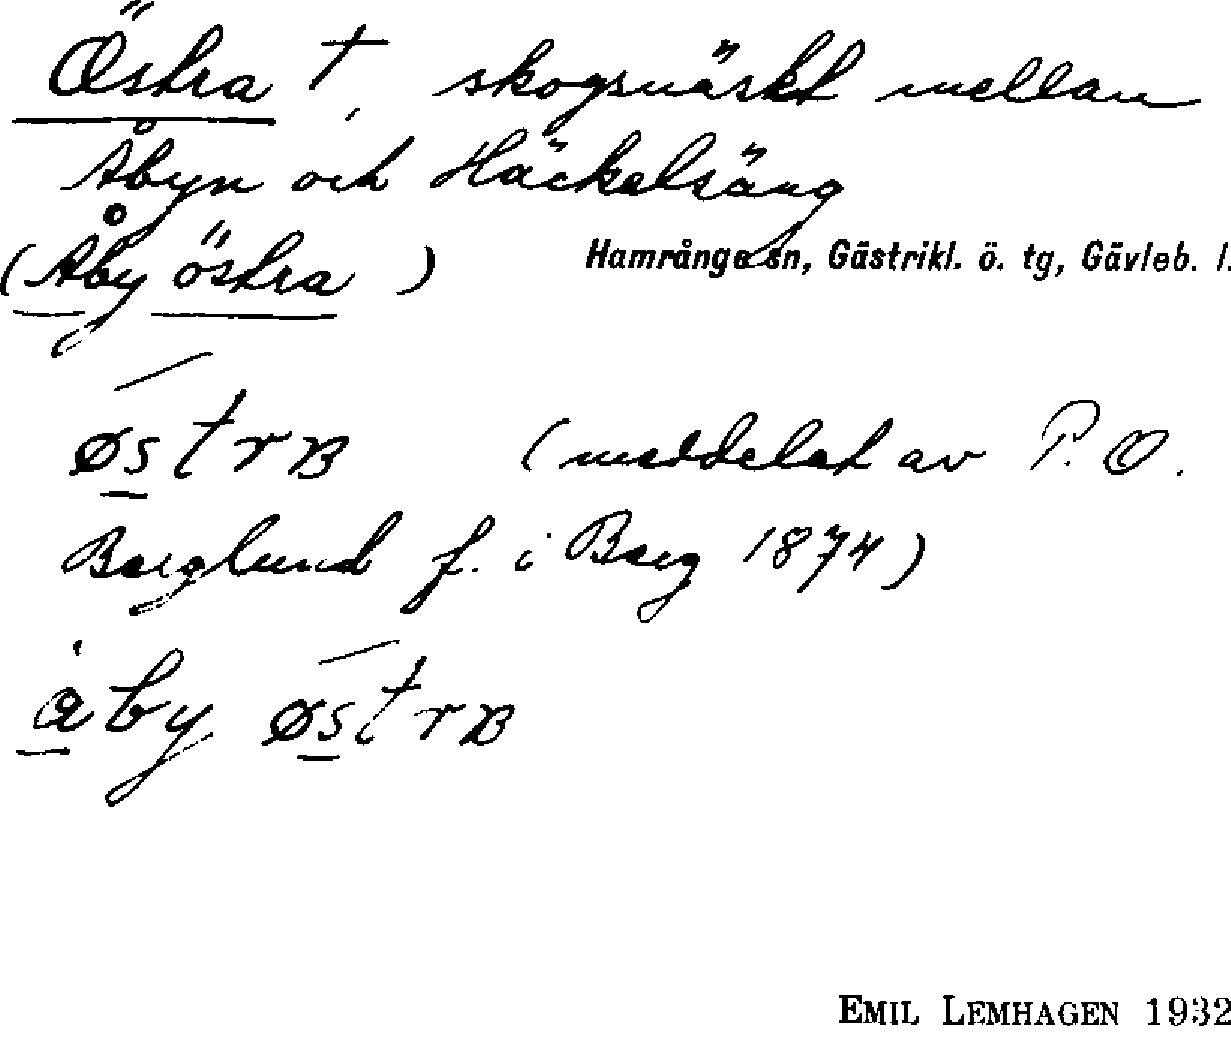 Östra †, skogsmärkt mellan
Åbyn och Häckelsäng
(Åby östra) Hamrånge sn, Gästrikl. ö. tg, Gävleb. l.
østrʙ (meddelat av P. O.
Berglund f. i Berg 1874)
åby østrʙ
EMIL LEMHAGEN 1932